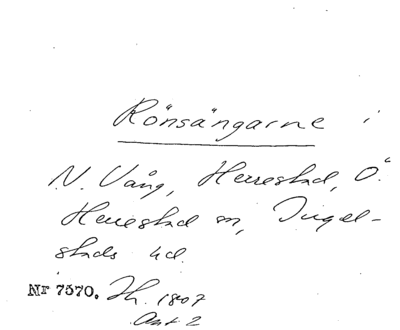 Rönsängarne i
N. Vång, Herrestad, Ö.
Herrestad sn, Ingel-
stads hd.
Nr 7570. Jh. 1807
Akt 2